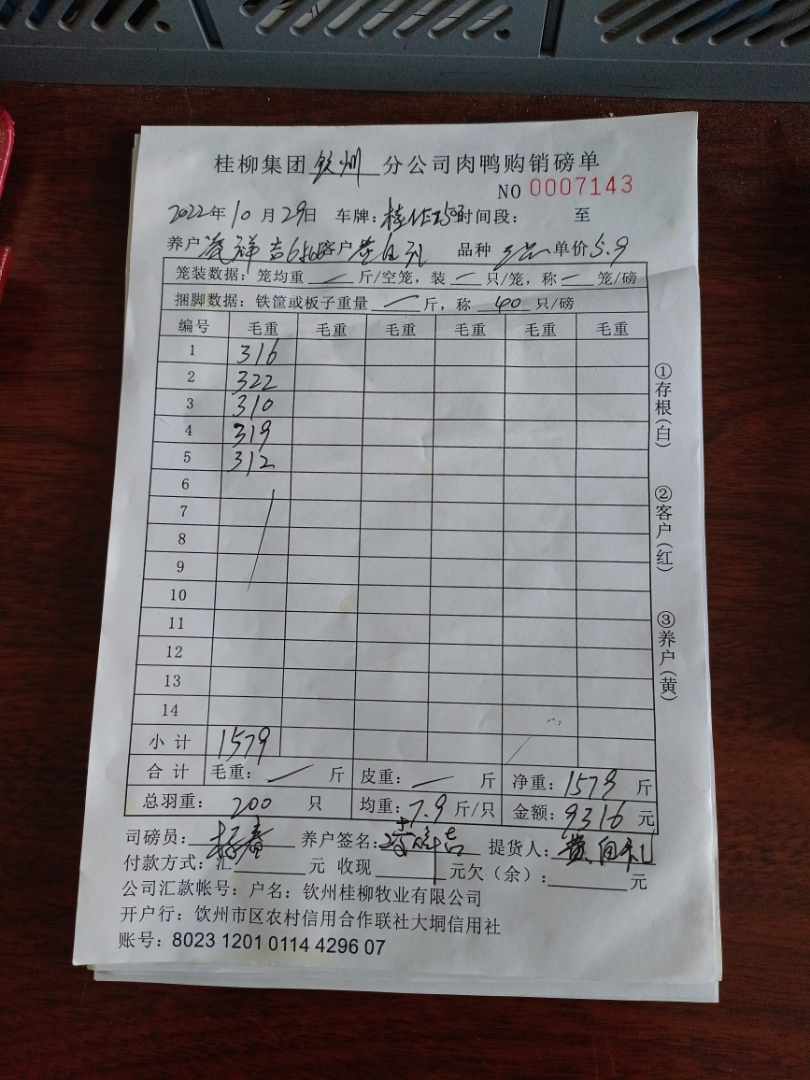 桂柳集团 钦州 分公司肉鸭购销磅单
NO 0007143
2022年10月29日 车牌: 时间段: 至
养户 祥吉 客户 品种 单价 5.9
笼装数据: 笼均重 — 斤/空笼, 装 — 只/笼, 称 — 笼/磅
捆脚数据: 铁筐或板子重量 — 斤, 称 40 只/磅
编号 毛重 毛重 毛重 毛重 毛重 毛重
1 316
2 322
3 310
4 319
5 312
6
7
8
9
10
11
12
13
14
小计 1579
合计 毛重: — 斤 皮重: — 斤 净重: 1579 斤
总羽重: 200 只 均重: 7.9 斤/只 金额: 9316 元
司磅员: 养户签名: 祥吉 提货人: 黄自礼
付款方式: 汇 元 收现 元欠(余): 元
公司汇款帐号: 户名: 钦州桂柳牧业有限公司
开户行: 钦州市区农村信用合作联社大垌信用社
账号: 8023 1201 0114 4296 07
①存根(白) ②客户(红) ③养户(黄)